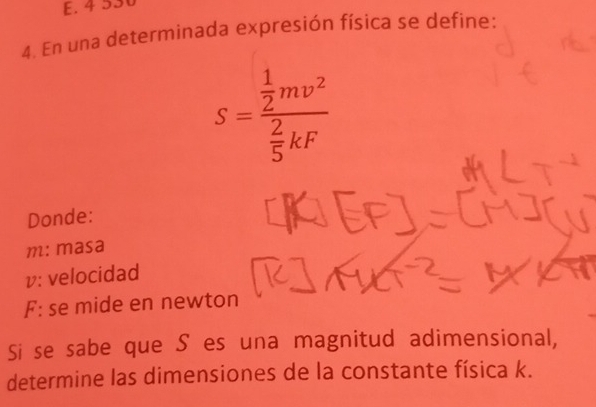 E. 4 530
4. En una determinada expresión física se define:
S = \frac{\frac{1}{2}mv^2}{\frac{2}{5}kF}
M L T^{-1}
Donde:
[K] [F] = [M] [U]
m: masa
v: velocidad
[K] MLT^{-2} = M
F: se mide en newton
Si se sabe que S es una magnitud adimensional,
determine las dimensiones de la constante física k.